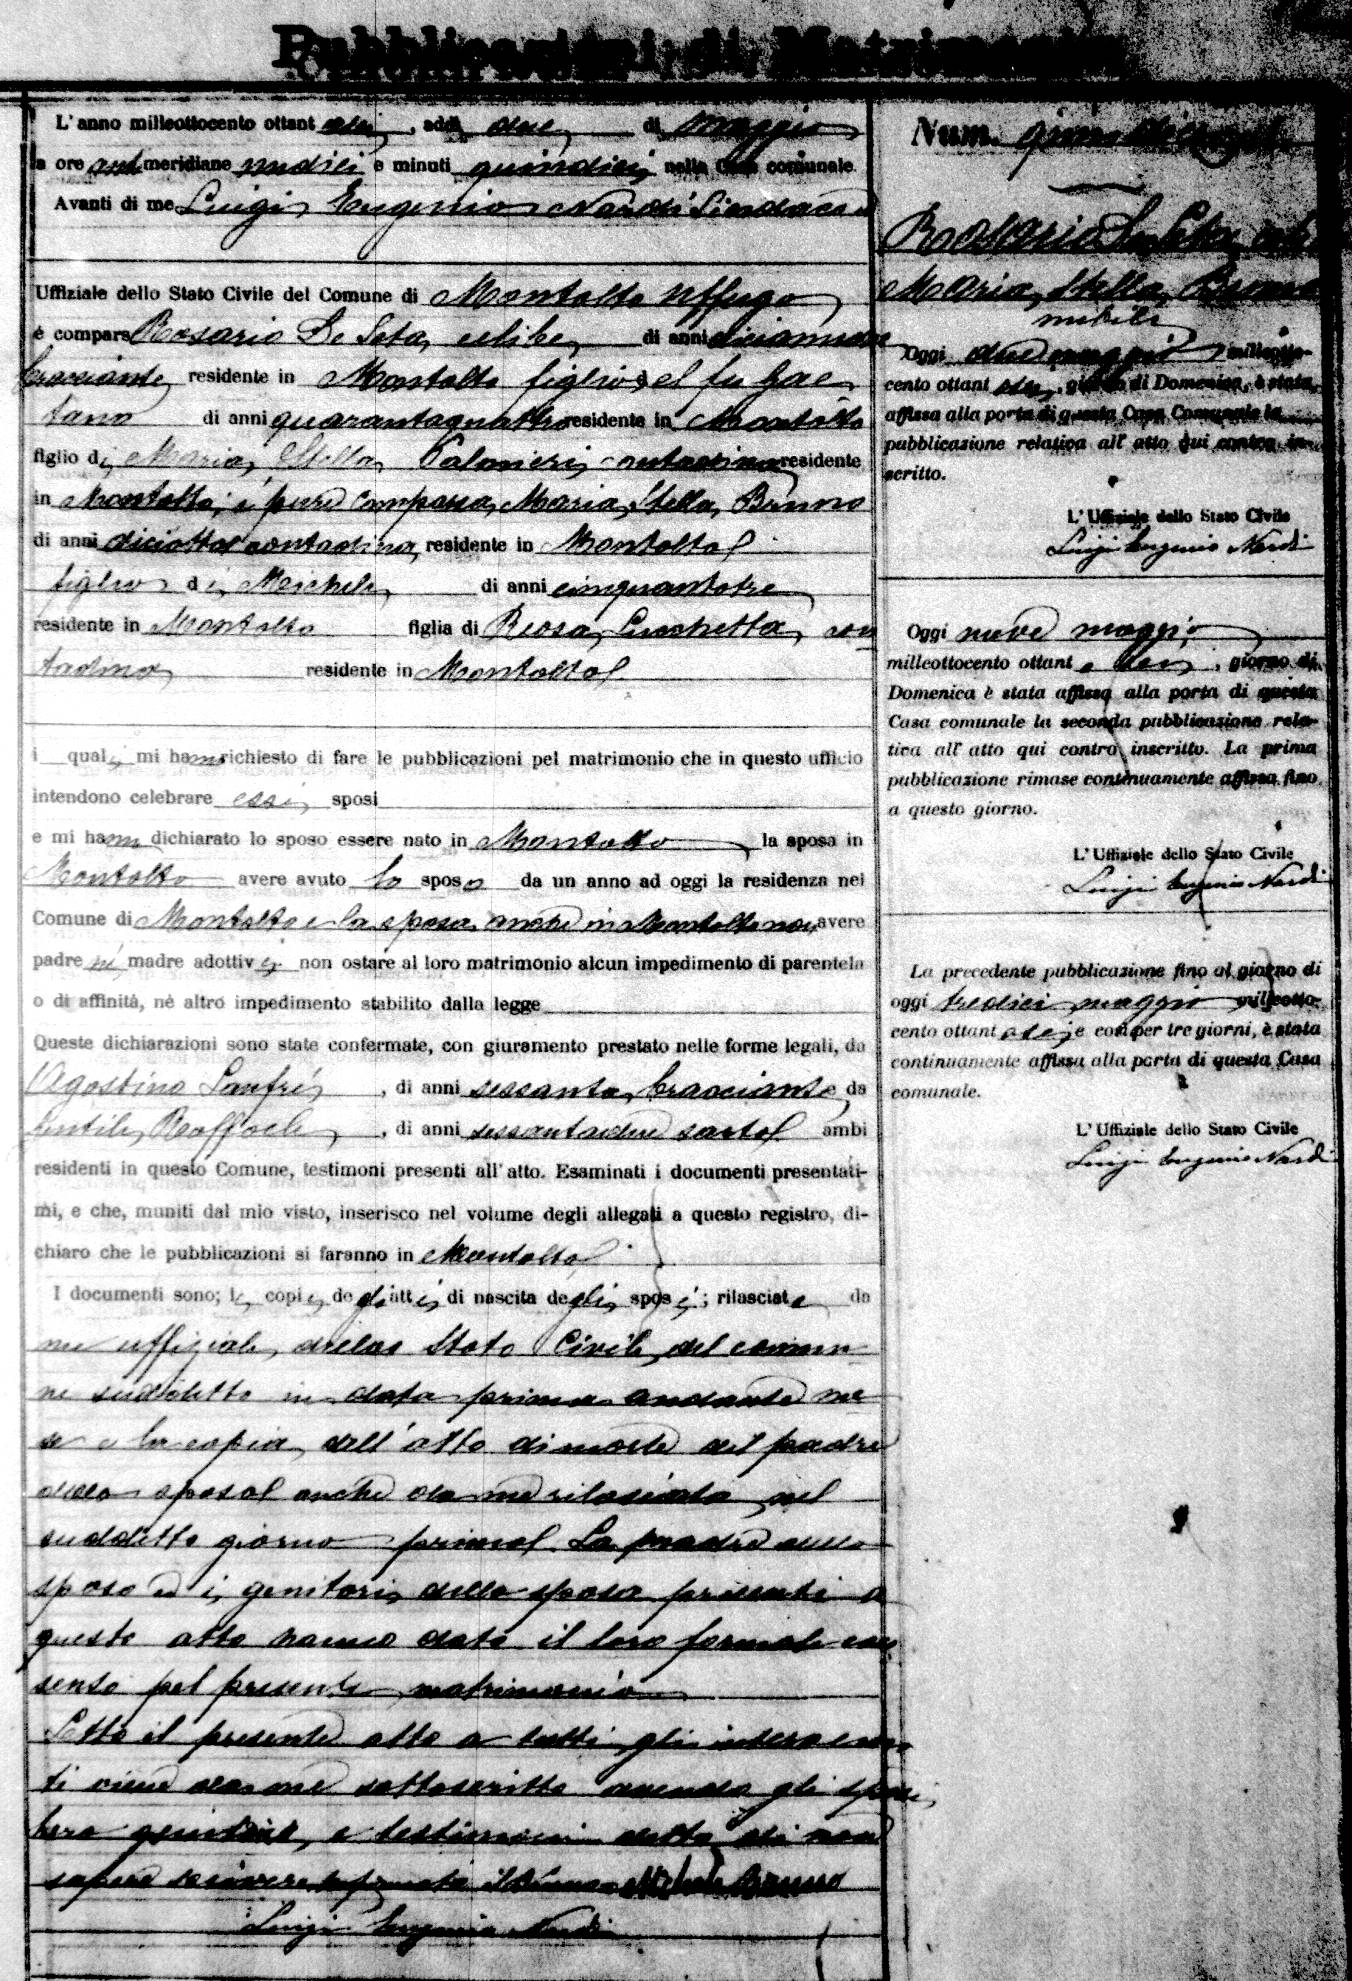 Pubblicazioni di Matrimonio
L'anno milleottocento ottantasei, addì due di maggio
a ore antmeridiane undici e minuti quindici nella Casa comunale.
Avanti di me Luigi Eugenio Nardi Sindaco
Uffiziale dello Stato Civile del Comune di Montalto Uffugo
è compars Rosario De Seta, celibe, di anni
bracciante, residente in Montalto figlio del fu Gae
tano di anni quarantaquattro residente in Montalto
figlio di Maria, Stella, Palmieri, contadina residente
in Montalto; è pure comparsa, Maria, Stella, Bruno
di anni diciotto contadina, residente in Montalto
figlia di Michele, di anni cinquantatre
residente in Montalto figlia di Rosa, con
tadina residente in Montalto
i quali mi hanno richiesto di fare le pubblicazioni pel matrimonio che in questo ufficio
intendono celebrare essi sposi
e mi hanno dichiarato lo sposo essere nato in Montalto la sposa in
Montalto avere avuto lo sposo da un anno ad oggi la residenza nel
Comune di Montalto e la sposa anche in Montalto non avere
padre né madre adottivi non ostare al loro matrimonio alcun impedimento di parentela
o di affinità, nè altro impedimento stabilito dalla legge
Queste dichiarazioni sono state confermate, con giuramento prestato nelle forme legali, da
Agostino Lanfri, di anni sessanta, bracciante e da
Gentile, Raffaele, di anni sessantadue sarto ambi
residenti in questo Comune, testimoni presenti all'atto. Esaminati i documenti presentati-
mi, e che, muniti dal mio visto, inserisco nel volume degli allegati a questo registro, di-
chiaro che le pubblicazioni si faranno in Montalto
I documenti sono; le copie degli atti di nascita degli sposi; rilasciate da
me uffiziale, dello Stato Civile, del comu
ne suddetto in data primo andante me
se e la copia, dell'atto di morte del padre
dello sposo anche da me rilasciata, nel
suddetto giorno primo. La madre dello
sposo ed i genitori della sposa presenti a
questo atto hanno dato il loro formale con
senso pel presente matrimonio
Letto il presente atto a tutti gli intervenu
ti viene da me sottoscritto avendo gli sposi,
loro genitori, e testimoni detto di non
sapere scrivere Michele Bruno
Luigi Eugenio Nardi
Num. quindici
Rosario De Seta
Maria, Stella, Bruno
nubile
Oggi due maggio milleotto-
cento ottantasei, giorno di Domenica, è stata
affissa alla porta di questa Casa Comunale la
pubblicazione relativa all'atto qui contro in-
scritto.
L'Uffiziale dello Stato Civile
Luigi Eugenio Nardi
Oggi nove maggio
milleottocento ottantasei, giorno di
Domenica è stata affissa alla porta di questa
Casa comunale la seconda pubblicazione rela-
tiva all'atto qui contro inscritto. La prima
pubblicazione rimase continuamente affissa fino
a questo giorno.
L'Uffiziale dello Stato Civile
Luigi Eugenio Nardi
La precedente pubblicazione fino al giorno di
oggi tredici maggio milleotto-
cento ottantasei e così per tre giorni, è stata
continuamente affissa alla porta di questa Casa
comunale.
L'Uffiziale dello Stato Civile
Luigi Eugenio Nardi